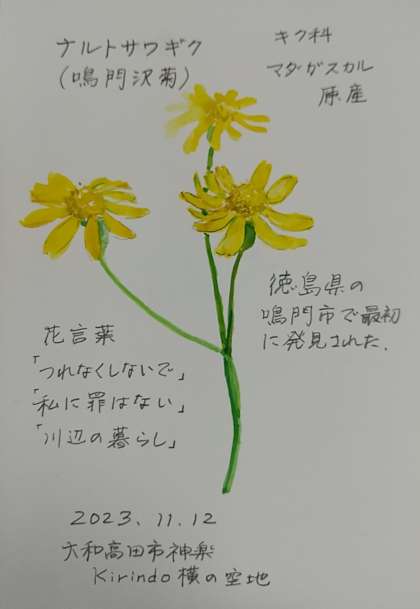 ナルトサワギク
(鳴門沢菊)
キク科
マダガスカル
原産
徳島県の
鳴門市で最初
に発見された.
花言葉
「つれなくしないで」
「私に罪はない」
「川辺の暮らし」
2023.11.12
大和高田市神楽
Kirindo横の空地